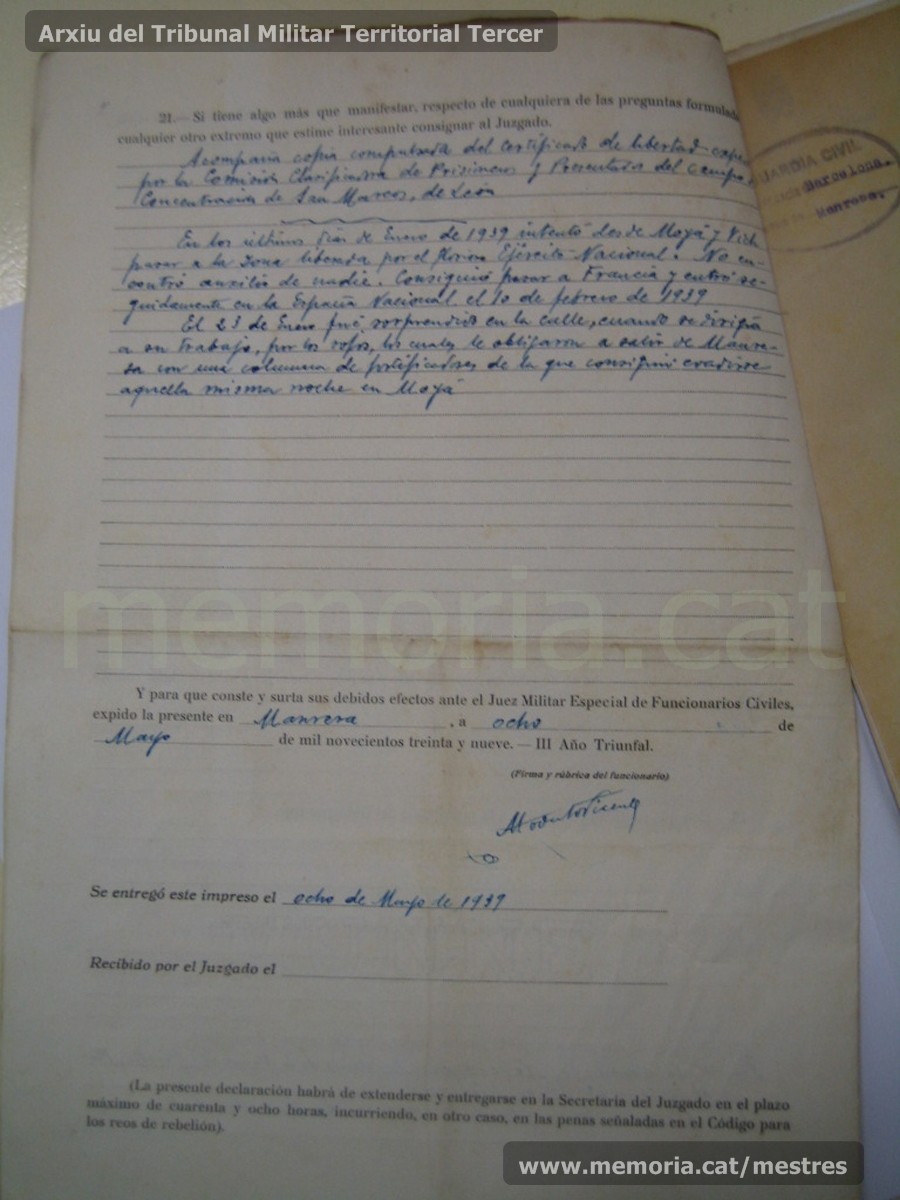 Arxiu del Tribunal Militar Territorial Tercer
21.— Si tiene algo más que manifestar, respecto de cualquiera de las preguntas formulad
cualquier otro extremo que estime interesante consignar al Juzgado.
Acompaña copia compulsada del certificado de libertad expe
por la Comisión Clasificadora de Prisioneros y Presentados del Campo
Concentración de San Marcos, de León
En los últimos días de Enero de 1939 intentó desde Moyá y Vich
pasar a la zona liberada por el Ejército Nacional. No en-
contró auxilio de nadie. Consiguió pasar a Francia y entró se-
guidamente en la España Nacional el 10 de febrero de 1939
El 23 de Enero fué sorprendido en la calle, cuando se dirigía
a su trabajo, por los rojos, los cuales le obligaron a salir de Manre-
sa con una columna de fortificadores de la que consiguió evadirse
aquella misma noche en Moyá
UARDIA CIVIL
Barcelona.
Manresa.
memoria.cat
Y para que conste y surta sus debidos efectos ante el Juez Militar Especial de Funcionarios Civiles,
expido la presente en Manresa, a ocho de
Mayo de mil novecientos treinta y nueve. — III Año Triunfal.
(Firma y rúbrica del funcionario)
Se entregó este impreso el ocho de Mayo de 1939
Recibido por el Juzgado el
(La presente declaración habrá de extenderse y entregarse en la Secretaría del Juzgado en el plazo
máximo de cuarenta y ocho horas, incurriendo, en otro caso, en las penas señaladas en el Código para
los reos de rebelión).
www.memoria.cat/mestres